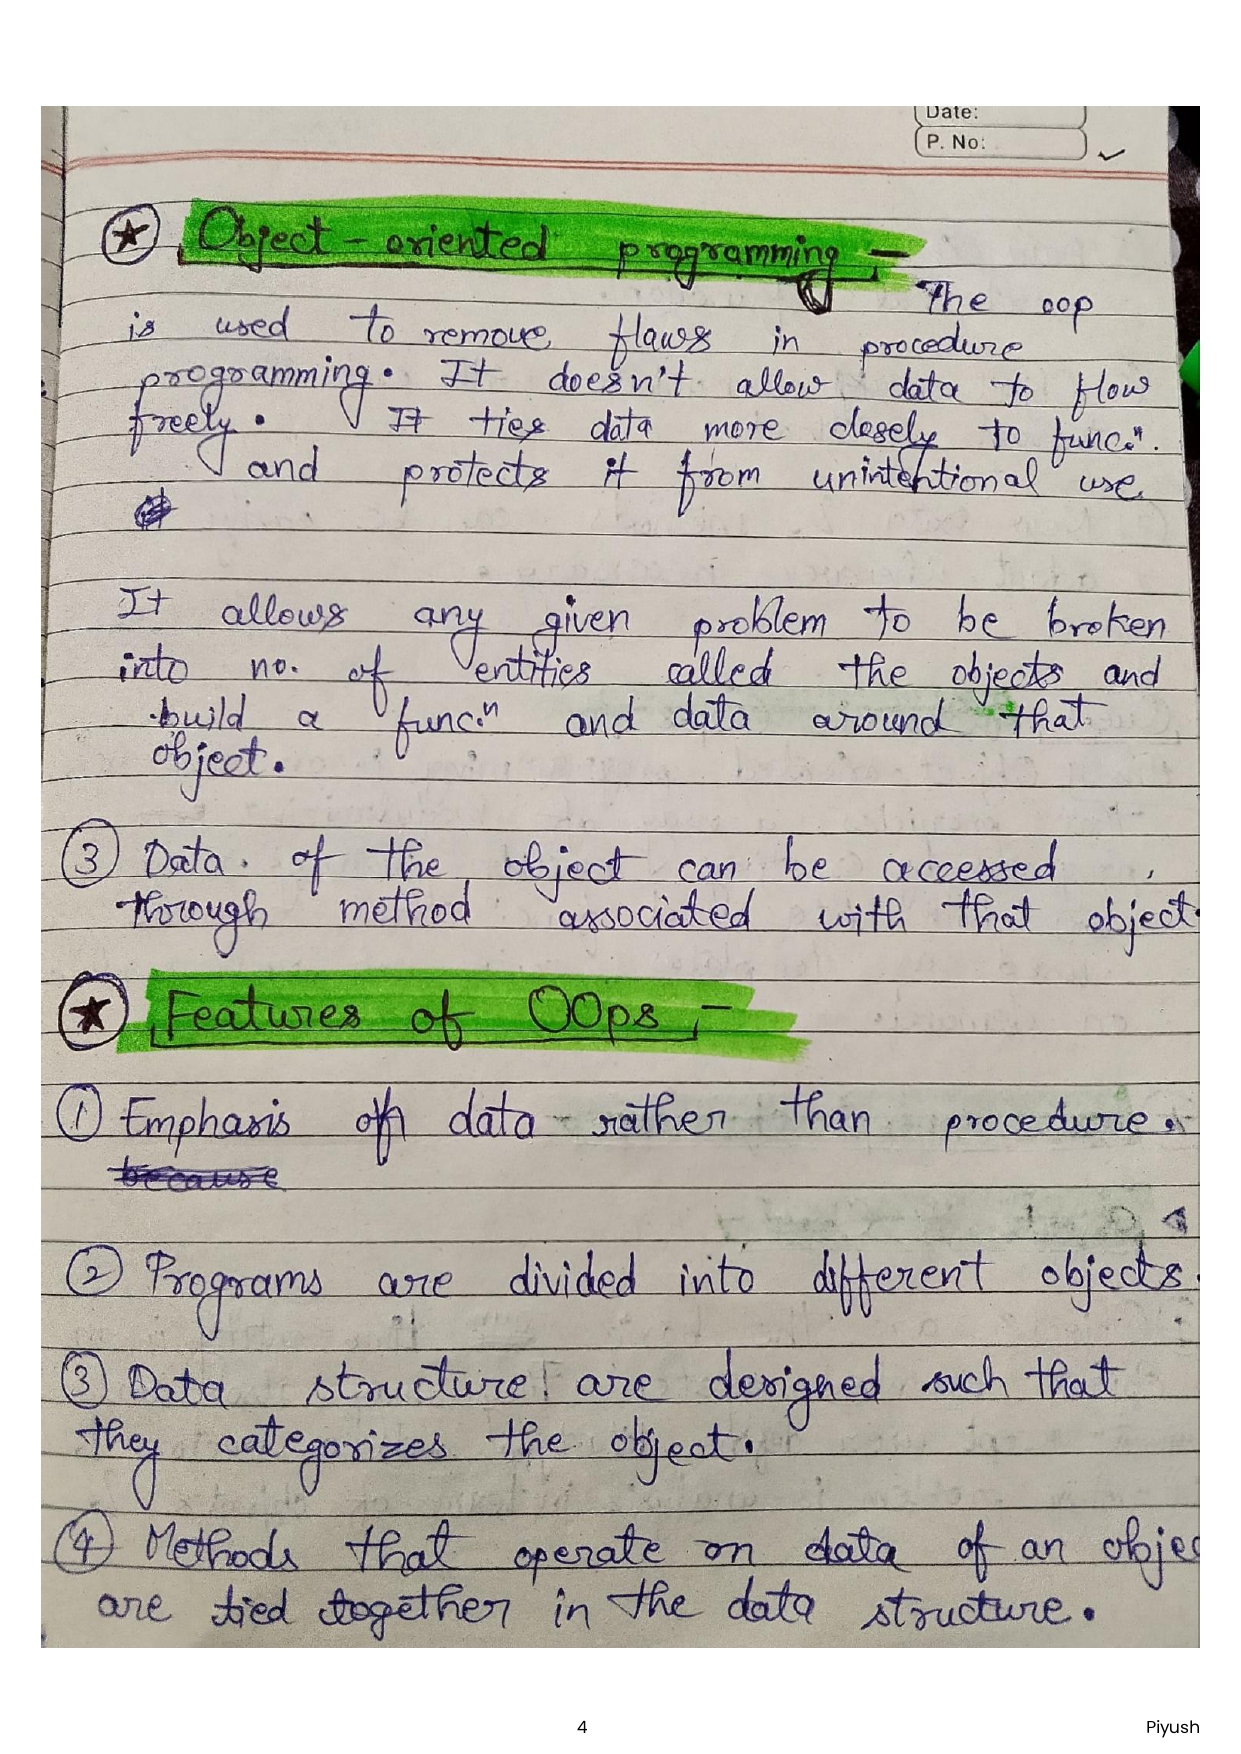 Date:
P. No:
Object-oriented programming :-
The oop
is used to remove flaws in procedure
programming. It doesn't allow data to flow
freely. It ties data more closely to func.ⁿ.
and protects it from unintentional use
It allows any given problem to be broken
into no. of entities called the objects and
build a func.ⁿ and data around that
object.
③ Data of the object can be accessed
through method associated with that object.
Features of OOps :-
① Emphasis on data rather than procedure.
because
② Programs are divided into different objects.
③ Data structure are designed such that
they categorizes the object.
④ Methods that operate on data of an objec
are tied together in the data structure.
4
Piyush